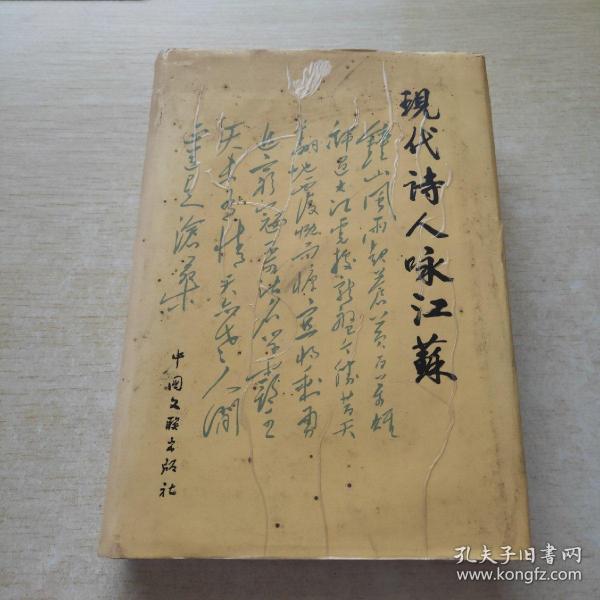 現代诗人咏江蘇
鍾山風雨起蒼黄百萬雄
師過大江虎踞龍盤今勝昔天
翻地覆慨而慷宜將剩勇
追窮寇不可沽名學霸王
天若有情天亦老人間
正道是滄桑
中國文联出版社
孔夫子旧书网
www.kongfz.com